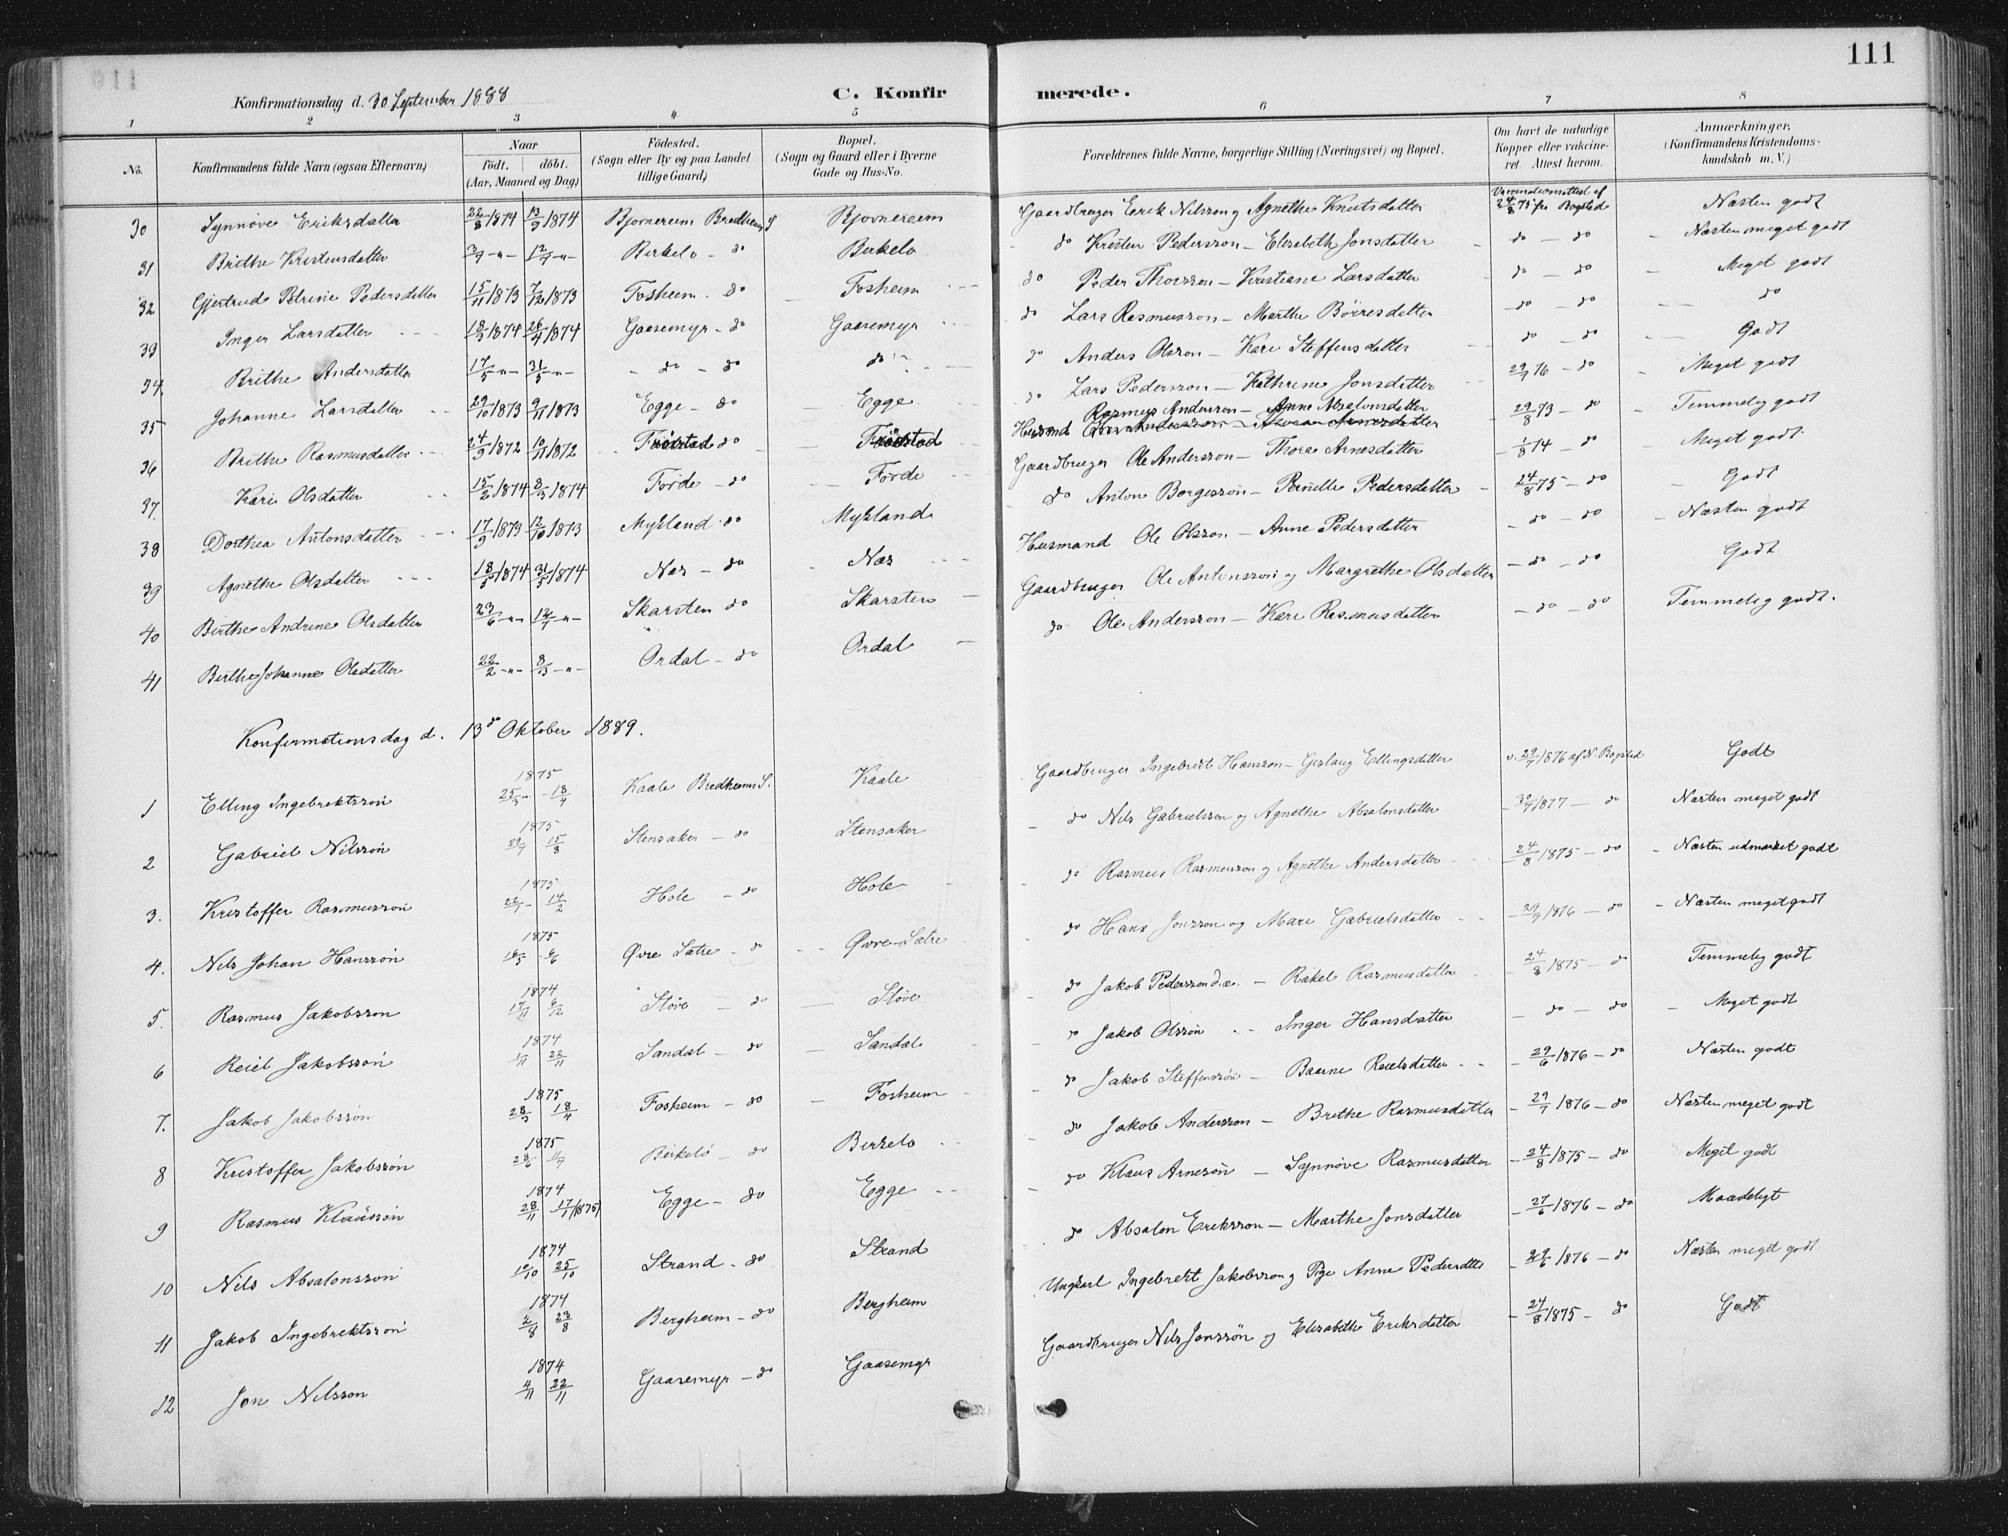 111
Konfirmationsdag d. 30 September 1888 C. Konfirmerede.
1 2 3 4 5 6 7 8
No. Konfirmandens fulde Navn (ogsaa Efternavn) Naar født. døbt. (Aar, Maaned og Dag) Födested. (Sogn eller By og paa Landet tillige Gaard) Bopæl. (Sogn og Gaard eller i Byerne Gade og Hus-No. Forældrenes fulde Navne, borgerlige Stilling (Næringsvei) og Bopæl. Om havt de naturlige Kopper eller vakcineret. Attest herom. Anmærkninger. (Konfirmandens Kristendomskundskab m. V.)
30 Synnøve Eriksdatter 22/8 1874 13/9 1874 Bjørnereim Bredheims S Bjørnereim Gaardbruger Erik Nilsson og Agnethe Knutsdatter Vaccinationsattest af 24/8 75 fra Bogstad Næsten godt
31 Brithe Kristensdatter 3/7 -"- 12/7 -"- Birkelo - do Birkelo - do Kristen Pedersson - Elisabeth Jonsdatter - do - do - Næsten meget godt
32 Gjertrud Petrine Pedersdatter 15/11 1873 7/12 1873 Fosheim - do Fosheim do Peder Thorsson - Kristiane Larsdatter - do - do - Meget godt
33 Inger Larsdatter 18/3 1874 26/4 1874 Gaasemyr - do Gaasemyr do Lars Rasmusson - Marthe Börresdatter - do - do - do
34. Brithe Andersdatter 17/5 -"- 31/5 -"- - do - do do do Anders Olsson - Kari Steffensdatter do - do - Godt
35 Johanne Larsdatter 29/10 1873 9/11 1873 Egge - do Egge do Lars Pedersson - Kathrine Jonsdatter 29/7 76 - do - Meget godt
36 Brithe Rasmusdatter 24/9 1872 10/11 1872 do Husmand Rasmus Andersson - Anne Absalonsdatter - 29/8 73 - do - Temmelig godt
37. Kari Olsdatter 15/2 1874 8/3 1874 Førde - do Førde Gaardbruger Ole Andersson - Thore Arnesdatter - 1/8 74 - do - Meget godt.
38 Dorthea Antonsdatter 17/9 1873 12/10 1873 Mykland - do Mykland do Anton Borgesson - Pernille Pedersdatter - 24/8 75 - do - Godt
39 Agnethe Olsdatter 18/5 1874 31/5 1874 Nos - do Nos Husmand Ole Olsson - Anne Pedersdatter - do - do - Næsten godt
40 Birthe Andrine Olsdatter 23/6 -"- 12/7 -"- Skarsten do Skarsten Gaardbruger Ole Antonsson og Margrethe Olsdatter - do - do Godt
41 Birthe Johanne Olsdatter 22/2 -"- 8/3 -"- Ordal - do Ordal do Ole Andersson - Kari Rasmusdatter - do - do Temmelig godt.
Konfirmationsdag d. 13de Oktober 1889.
1 Elling Ingebrektssøn 1875 25/3 - 18/4 Kaale Bredheims S. Kaale Gaardbruger Ingebrikt Hansson - Gislaug Ellingsdatter v. 29/7 1876 af N. Bogstad Godt
2 Gabriel Nilssøn 1875 29/7 15/8 Stensaker - do Stensaker - do Nils Gabrielsson og Agnethe Absalonsdatter - 30/7 1877 - do Næsten meget godt
3. Kristoffer Rasmussøn 1875 22/1 - 14/2 Hole - do Hole do Rasmus Rasmusson og Agnethe Andersdatter 24/8 1875 - do - Næsten udmærket godt
4. Nils Johan Hanssøn 1875 16/5 6/6 Øvre Sætre - do Øvre Sætre do Hans Jonsson og Mari Gabrielsdatter - 29/7 1876 - do - Næsten meget godt
5. Rasmus Jakobsson 1874 17/11 6/12 Støve - do Støve do Jakob Pedersson - Rakel Rasmusdatter 24/8 1875 - do Temmelig godt
6 Reiel Jakobssøn 1874 22/11 Sandal - do Sandal do Jakob Olssøn - Inger Hansdatter - do - do - Meget godt
7. Jakob Jakobssøn 1875 28/3 18/4 Fosheim - do Fosheim do Jakob Steffenssøn - Baarne Reielsdatter - 29/6 1876 - do Næsten godt
8 Kristoffer Jakobssøn 1875 28/6 11/7 Birkelo - do Birkelo do Jakob Andersson - Brithe Rasmusdatter - 29/7 1876 - do Næsten meget godt
9 Rasmus Klaussøn 1874 28/11 17/1 (1875) Egge - do Egge do Klaus Arnesøn - Synnøve Rasmusdatter - 24/8 1875 - do Meget godt
10 Nils Absalonssøn 1874 10/10 25/10 Strand - do Strand do Absalon Eriksson - Marthe Jonsdatter - 27/6 1876 - do Maadeligt
11 Jakob Ingebrektssøn 1874 2/8 23/8 Bergheim - do Bergheim Ungkarl Ingebrikt Jakobsson og Pige Anne Pedersdtter - 29/6 1876 - do Næsten meget godt
12 Jon Nilsson 1874 4/11 22/11 Gaasemyr - do Gaasemyr Gaardbruger Nils Jonssøn og Elisabethe Eriksdatter - 24/8 1875 - do Godt